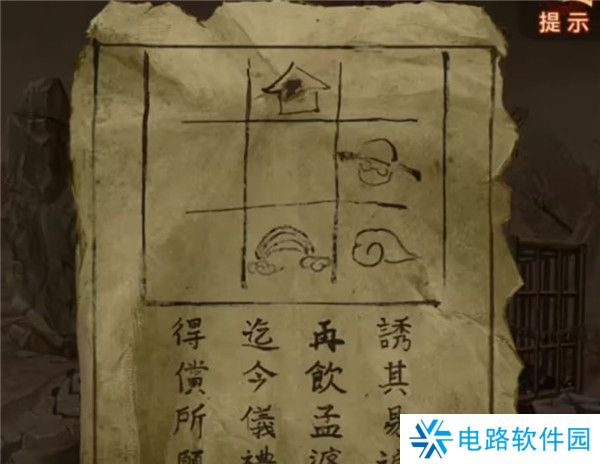 提示
誘其易
再飲孟婆
迄今儀禮
得償所願
电路软件园